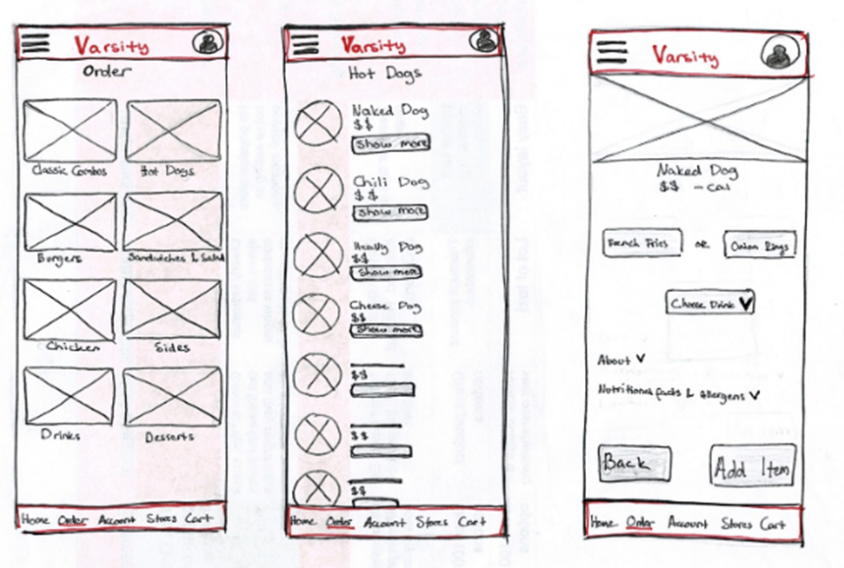 Varsity
Order
Classic Combos
Hot Dogs
Burgers
Sandwiches & Salad
Chicken
Sides
Drinks
Desserts
Home Order Account Stores Cart
Varsity
Hot Dogs
Naked Dog
$$
Show more
Chili Dog
$$
Show more
Heavy Dog
$$
Show more
Cheese Dog
$$
Show more
$$
$$
$$
Home Order Account Stores Cart
Varsity
Naked Dog
$$ - cal
French Fries OR Onion Rings
Choose Drink
About
Nutritional facts & allergens
Back
Add Item
Home Order Account Stores Cart